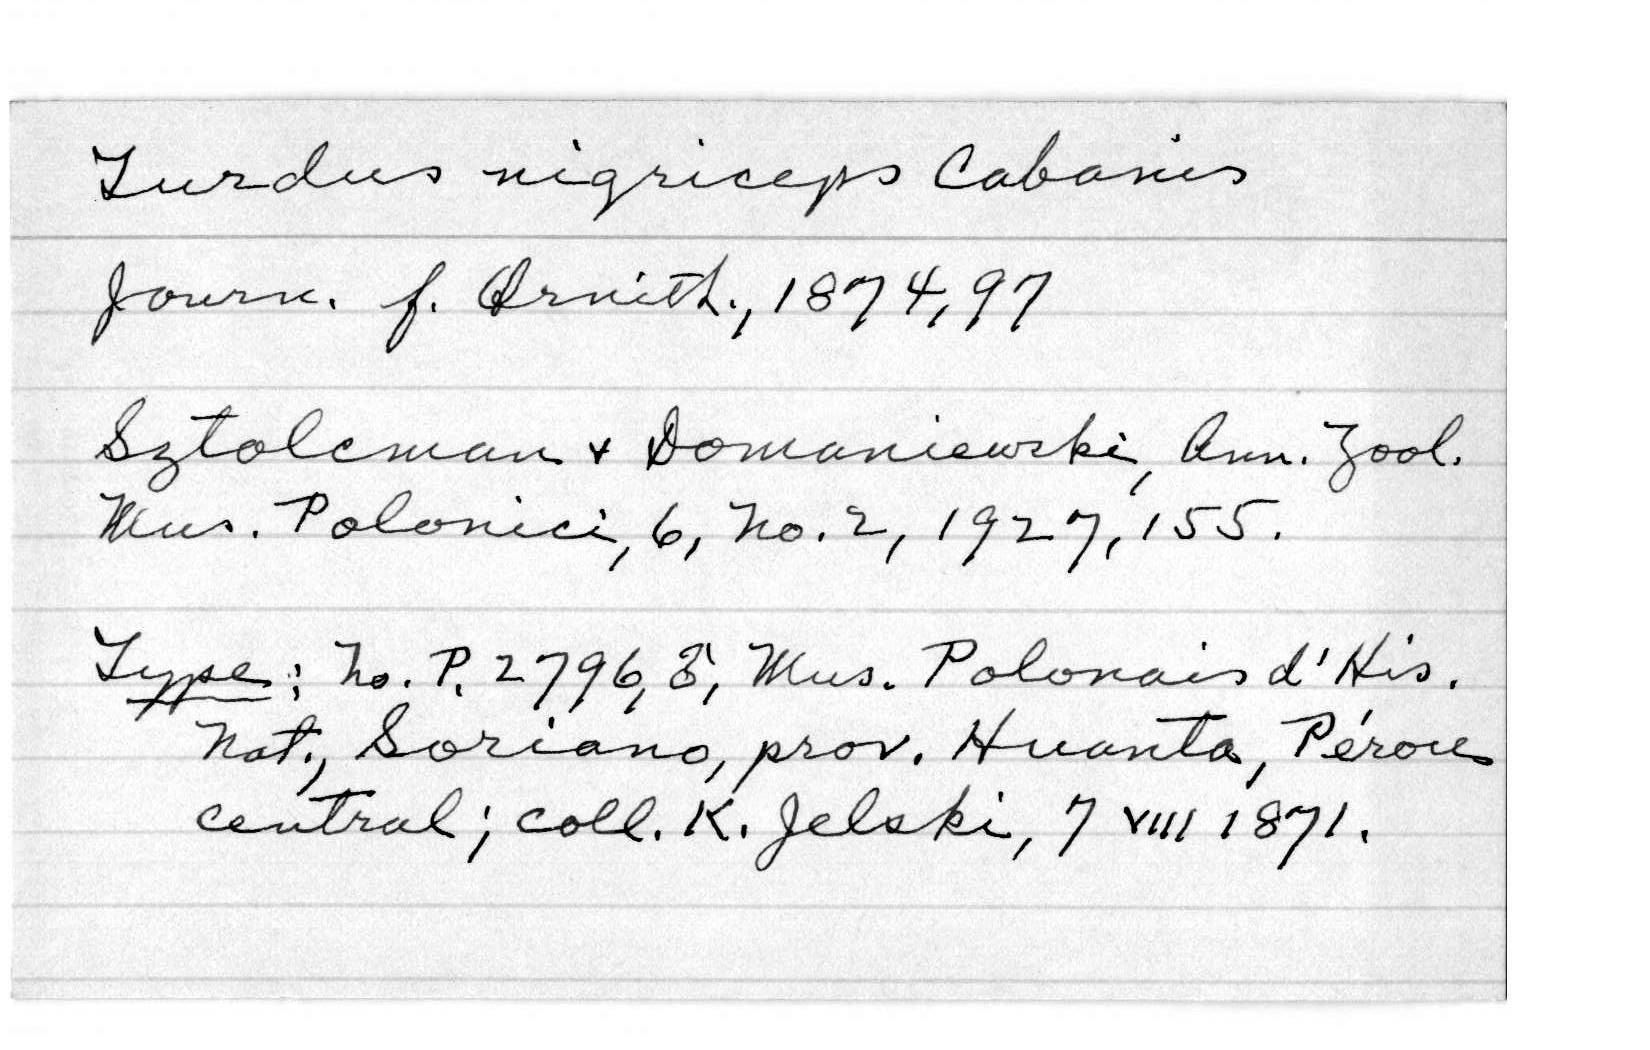 Turdus nigriceps Cabanis
Journ. f. Ornith., 1874, 97
Sztolcman & Domaniewski, Ann. Zool.
Mus. Polonici, 6, No. 2, 1927, 155.
Type: No. P. 2796, ♂, Mus. Polonais d'His.
Nat., Soriano, prov. Huanta, Pérou
central; coll. K. Jelski, 7 VIII 1871.